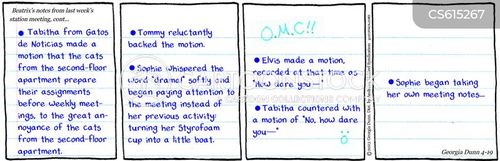 Beatrix's notes from last week's
station meeting, cont...
• Tabitha from Gatos
de Noticias made a
motion that the cats
from the second-floor
apartment prepare
their assignments
before weekly meet-
ings, to the great an-
noyance of the cats
from the second floor
apartment.
• Tommy reluctantly
backed the motion.
• Sophie whispered the
word "drama" softly and
began paying attention to
the meeting instead of
her previous activity:
turning her Styrofoam
cup into a little boat.
O.M.C!!
• Elvis made a motion,
recorded at that time as
"How dare you—"
• Tabitha countered with
a motion of "No, how dare
you—"
• Sophie began taking
her own meeting notes—
Georgia Dunn 4-19
CS615267